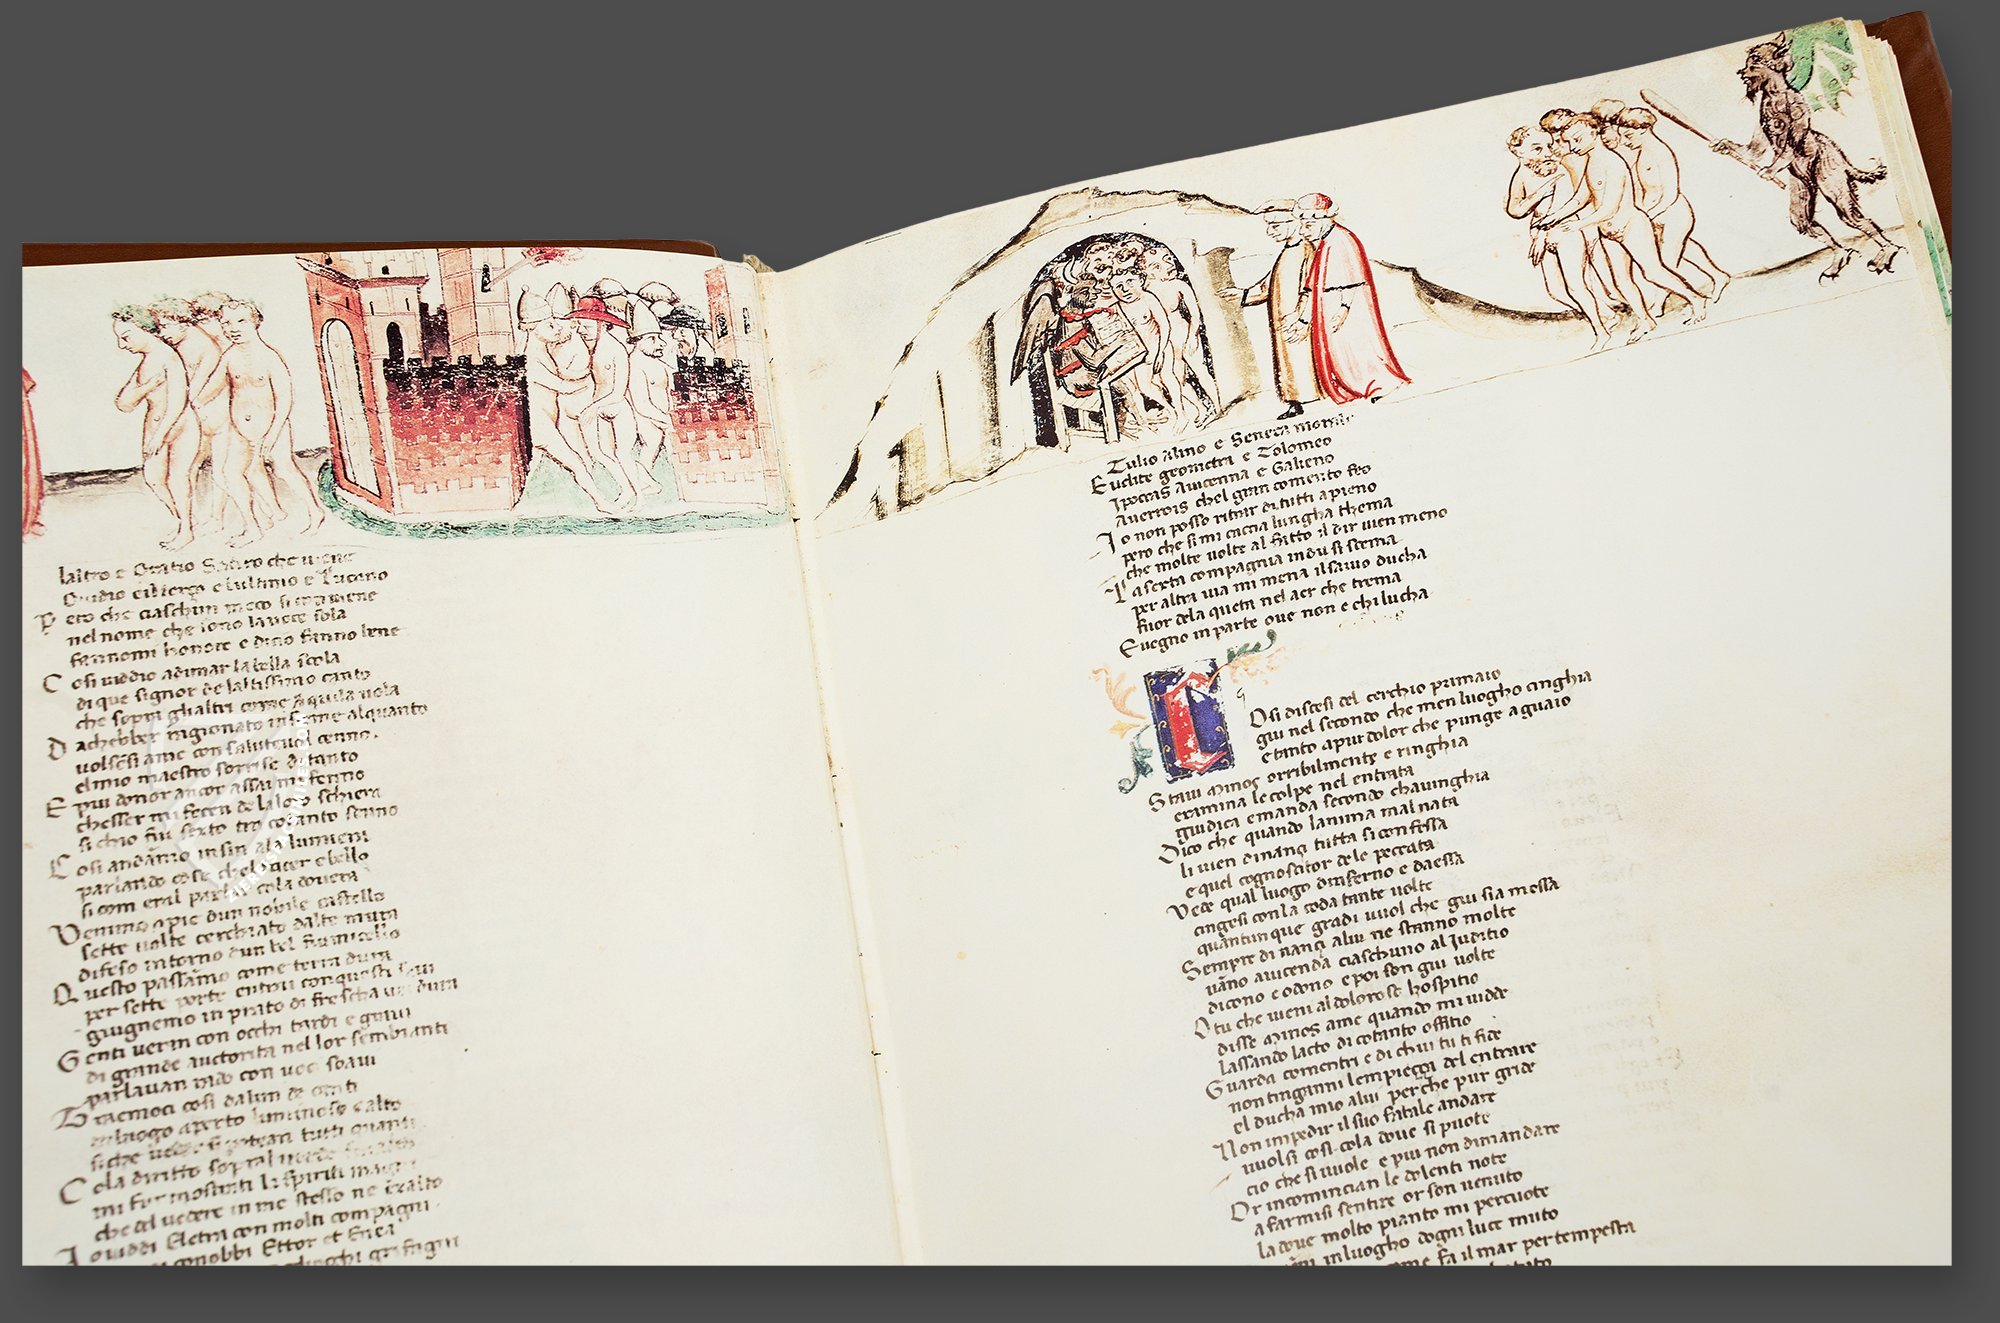 laltro e Oratio Satiro che viene
Ovidio eil terço e lultimo e Lucano
Pero che ciaschun meco si conviene
nel nome che sono la voce sola
fannomi honore e dicio fanno bene
Cosi viddio adunar la bella scola
di que signor de laltissimo canto
che sopra glialtri come aquila vola
Dachebber ragionato insieme alquanto
volsesi ame con salutevol cenno.
elmio maestro sorrise di tanto
E piu donor ancor assai mi fenno
chesser mi fecen de la loro schiera
si chio fui sexto tra cotanto senno
Cosi andamo insin ala lumiera
parlando cose chel tacer e bello
si com eral parlar cola dovera
Venimo apie dun nobile castello
sette volte cerchiato dalte mura
difeso intorno dun bel fiumicello
Questo passamo come terra dura
per sette porte entrai con questi savi
giugnemo in prato di frescha verdura
Genti verin con occhi tardi e gravi
di grande auctorita nel lor sembianti
parlavan rado con voci soavi
Traemoci cosi dalun de canti
in luogo aperto luminoso e alto
siche veder si potean tutti quanti
Cola diritto sopral verde smalto
mi fur mostrati li spiriti magni
che del vedere in me stesso ne exalto
Io viddi Eletra con molti compagni
conobbi Ettor et Enea
occhi grifagni
Tulio alino e Seneca morale
Euclite geometra e Tolomeo
Ipocras Avicenna e Galieno
Averrois chel gran comento feo
Io non posso ritrar di tutti apieno
pero che si mi caccia lungha thema
che molte volte al fatto il dir vien meno
La sexta compagnia indu si scema
per altra via mi mena il savio ducha
fuor dela queta nel aer che trema
E vegno in parte ove non e chi lucha
Cosi discesi del cerchio primaio
giu nel secondo che men luogho cinghia
e tanto apiu dolor che punge aguaio
Stavi Minos orribilmente e ringhia
examina le colpe nel entrata
giudica e manda secondo chavinghia
Dico che quando lanima mal nata
li vien dinançi tutta si confessa
e quel cognoscitor de le peccata
Vede qual luogo dinferno e daessa
cingesi con la coda tante volte
quantunque gradi vuol che giu sia messa
Sempre di nançi alui ne stanno molte
vano avicenda ciaschuno al Juditio
dicono e odono e poi son giu volte
O tu che vieni al doloroso hospitio
disse Minos ame quando mi vidde
lassando lacto di cotanto offitio
Guarda comentri e di chui tu ti fide
non tinganni lempieçça del entrare
el ducha mio alui perche pur gride
Non impedir il suo fatale andare
vuolsi cosi cola dove si puote
cio che si vuole e piu non dimandare
Or incomincian le dolenti note
a farmisi sentire or son venuto
la dove molto pianto mi percuote
in luogho dogni luce muto
come fa il mar per tempesta